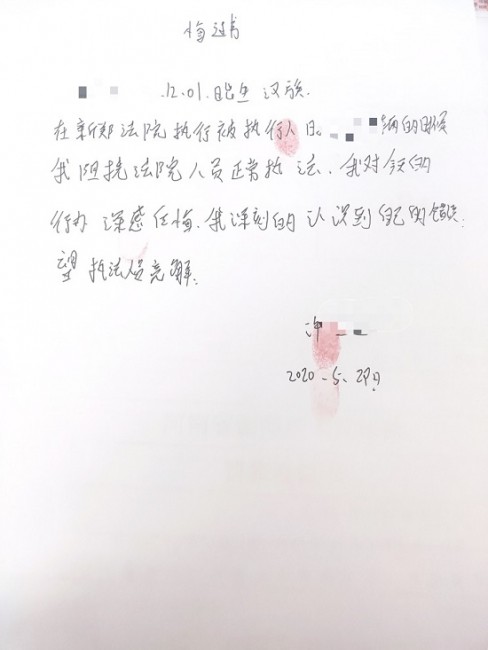 悔过书
12.01.日出生 汉族.
在新郑法院执行被执行人 辆的时候
我阻挠法院人员正常执法.我对我的
行为 深感 后悔.我深刻的 认识到 自己的错误.
望 执法人员 谅解.
许
2020.5.29日